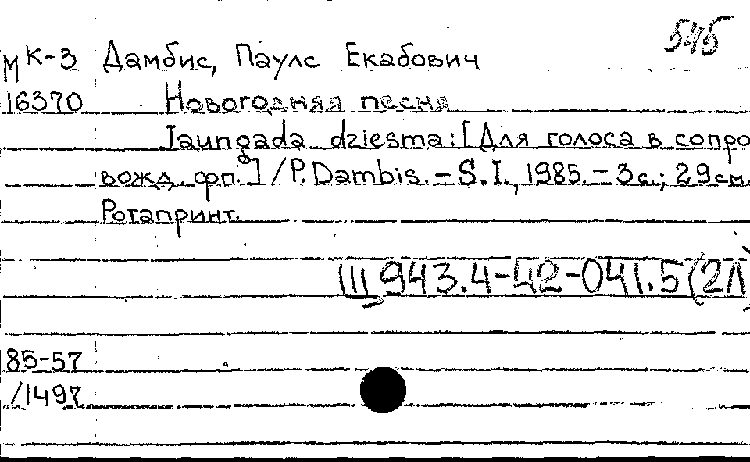 545
МК-3 Дамбис, Паулс Екабович
16370 Новогодняя песня
Jaungada dziesma: [Для голоса в сопро
вожд. фп.] / P. Dambis. – S. I., 1985. – 3 с.; 29 см.
Ротапринт.
Щ943.4-42-041.5(2Л)
85-57
/1497